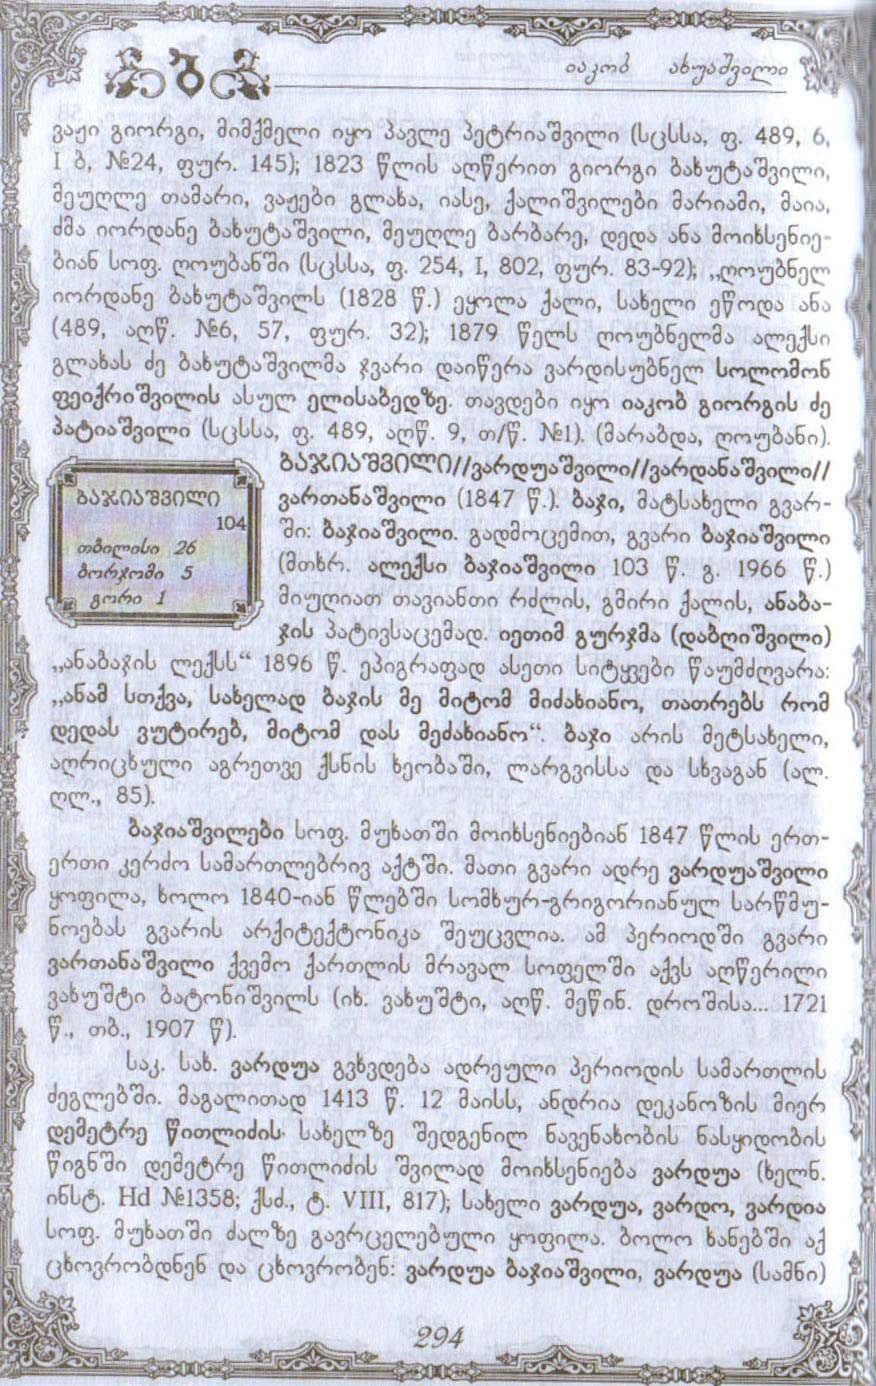 იაკობ ახუაშვილი
ვაჟი გიორგი, მიმქმელი იყო პავლე პეტრიაშვილი (სცსსა, ფ. 489, 6,
I ბ, №24, ფურ. 145); 1823 წლის აღწერით გიორგი ბახუტაშვილი,
მეუღლე თამარი, ვაჟები გლახა, იასე, ქალიშვილები მარიამი, მაია,
ძმა იორდანე ბახუტაშვილი, მეუღლე ბარბარე, დედა ანა მოიხსენიე-
ბიან სოფ. ღოუბანში (სცსსა, ფ. 254, I, 802, ფურ. 83-92); „ღოუბნელ
იორდანე ბახუტაშვილს (1828 წ.) ეყოლა ქალი, სახელი ეწოდა ანა
(489, აღწ. №6, 57, ფურ. 32); 1879 წელს ღოუბნელმა ალექსი
გლახას ძე ბახუტაშვილმა ჯვარი დაიწერა ვარდისუბნელ სოლომონ
ფეიქრიშვილის ასულ ელისაბედზე. თავდები იყო იაკობ გიორგის ძე
პატიაშვილი (სცსსა, ფ. 489, აღწ. 9, თ/წ. №1). (მარაბდა, ღოუბანი).
ბაჯიაშვილი
104
თბილისი 26
ბორჯომი 5
გორი 1
ბაჯიაშვილი//ვარდუაშვილი//ვარდანაშვილი//
ვართანაშვილი (1847 წ.). ბაჯი, მატსახელი გვარ-
ში: ბაჯიაშვილი. გადმოცემით, გვარი ბაჯიაშვილი
(მთხრ. ალექსი ბაჯიაშვილი 103 წ. გ. 1966 წ.)
მიუღიათ თავიანთი რძლის, გმირი ქალის, ანაბა-
ჯის პატივსაცემად. იეთიმ გურჯმა (დაბღიშვილი)
„ანაბაჯის ლექსს“ 1896 წ. ეპიგრაფად ასეთი სიტყვები წაუმძღვარა:
„ანამ სთქვა, სახელად ბაჯის მე მიტომ მიძახიანო, თათრებს რომ
დედას ვუტირებ, მიტომ დას მეძახიანო“. ბაჯი არის მეტსახელი,
აღრიცხული აგრეთვე ქსნის ხეობაში, ლარგვისსა და სხვაგან (ალ.
ღლ., 85).
ბაჯიაშვილები სოფ. მუხათში მოიხსენიებიან 1847 წლის ერთ-
ერთი კერძო სამართლებრივ აქტში. მათი გვარი ადრე ვარდუაშვილი
ყოფილა, ხოლო 1840-იან წლებში სომხურ-გრიგორიანულ სარწმუ-
ნოებას გვარის არქიტექტონიკა შეუცვლია. ამ პერიოდში გვარი
ვართანაშვილი ქვემო ქართლის მრავალ სოფელში აქვს აღწერილი
ვახუშტი ბატონიშვილს (იხ. ვახუშტი, აღწ. მეწინ. დროშისა... 1721
წ., თბ., 1907 წ).
საკ. სახ. ვარდუა გვხვდება ადრეული პერიოდის სამართლის
ძეგლებში. მაგალითად 1413 წ. 12 მაისს, ანდრია დეკანოზის მიერ
დემეტრე წითლიძის სახელზე შედგენილ ნავენახობის ნასყიდობის
წიგნში დემეტრე წითლიძის შვილად მოიხსენიება ვარდუა (ხელნ.
ინსტ. Hd №1358; ქსძ., ტ. VIII, 817); სახელი ვარდუა, ვარდო, ვარდია
სოფ. მუხათში ძალზე გავრცელებული ყოფილა. ბოლო ხანებში აქ
ცხოვრობდნენ და ცხოვრობენ: ვარდუა ბაჯიაშვილი, ვარდუა (სამნი)
294